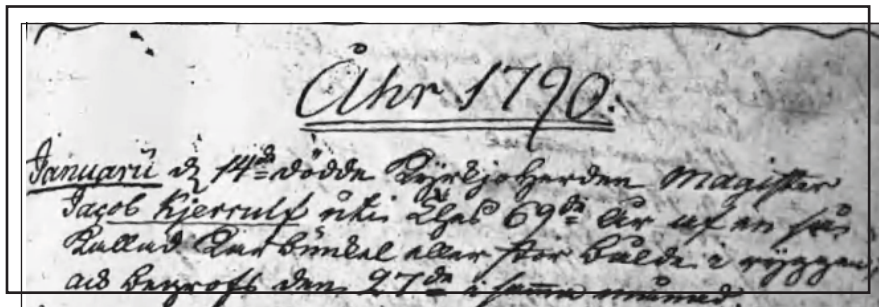 Åhr 1790.
Januarii d 14de dödde Kyrkjoherden Magister
Jacob Kjerrulf uti 69de År af en så
kallad Karbunkel eller stor bulde i ryggen,
begrofs den 27de i samma månad